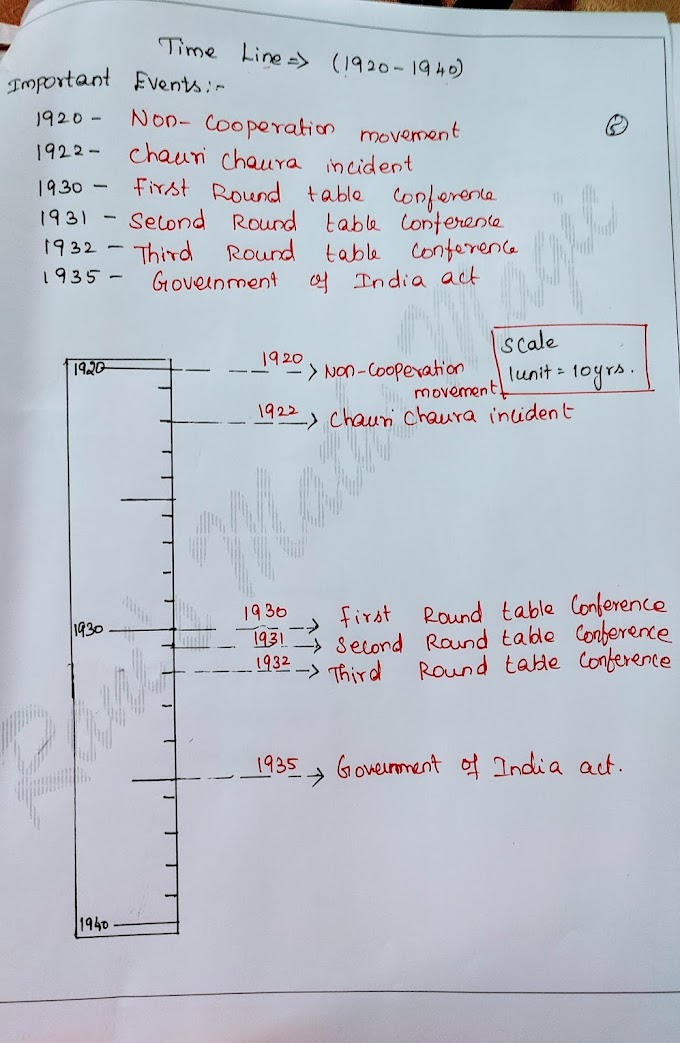 Time Line ⇒ (1920-1940)
Important Events:-
1920 - Non-Cooperation movement
1922 - Chauri Chaura incident
1930 - First Round table Conference
1931 - Second Round table Conference
1932 - Third Round table Conference
1935 - Government of India act
Scale
1unit = 10yrs.
1920
1920
Non-Cooperation
movement
1922
Chauri Chaura incident
1930
1930
First Round table Conference
1931
Second Round table Conference
1932
Third Round table Conference
1935
Government of India act.
1940
Rani's Maths Magic